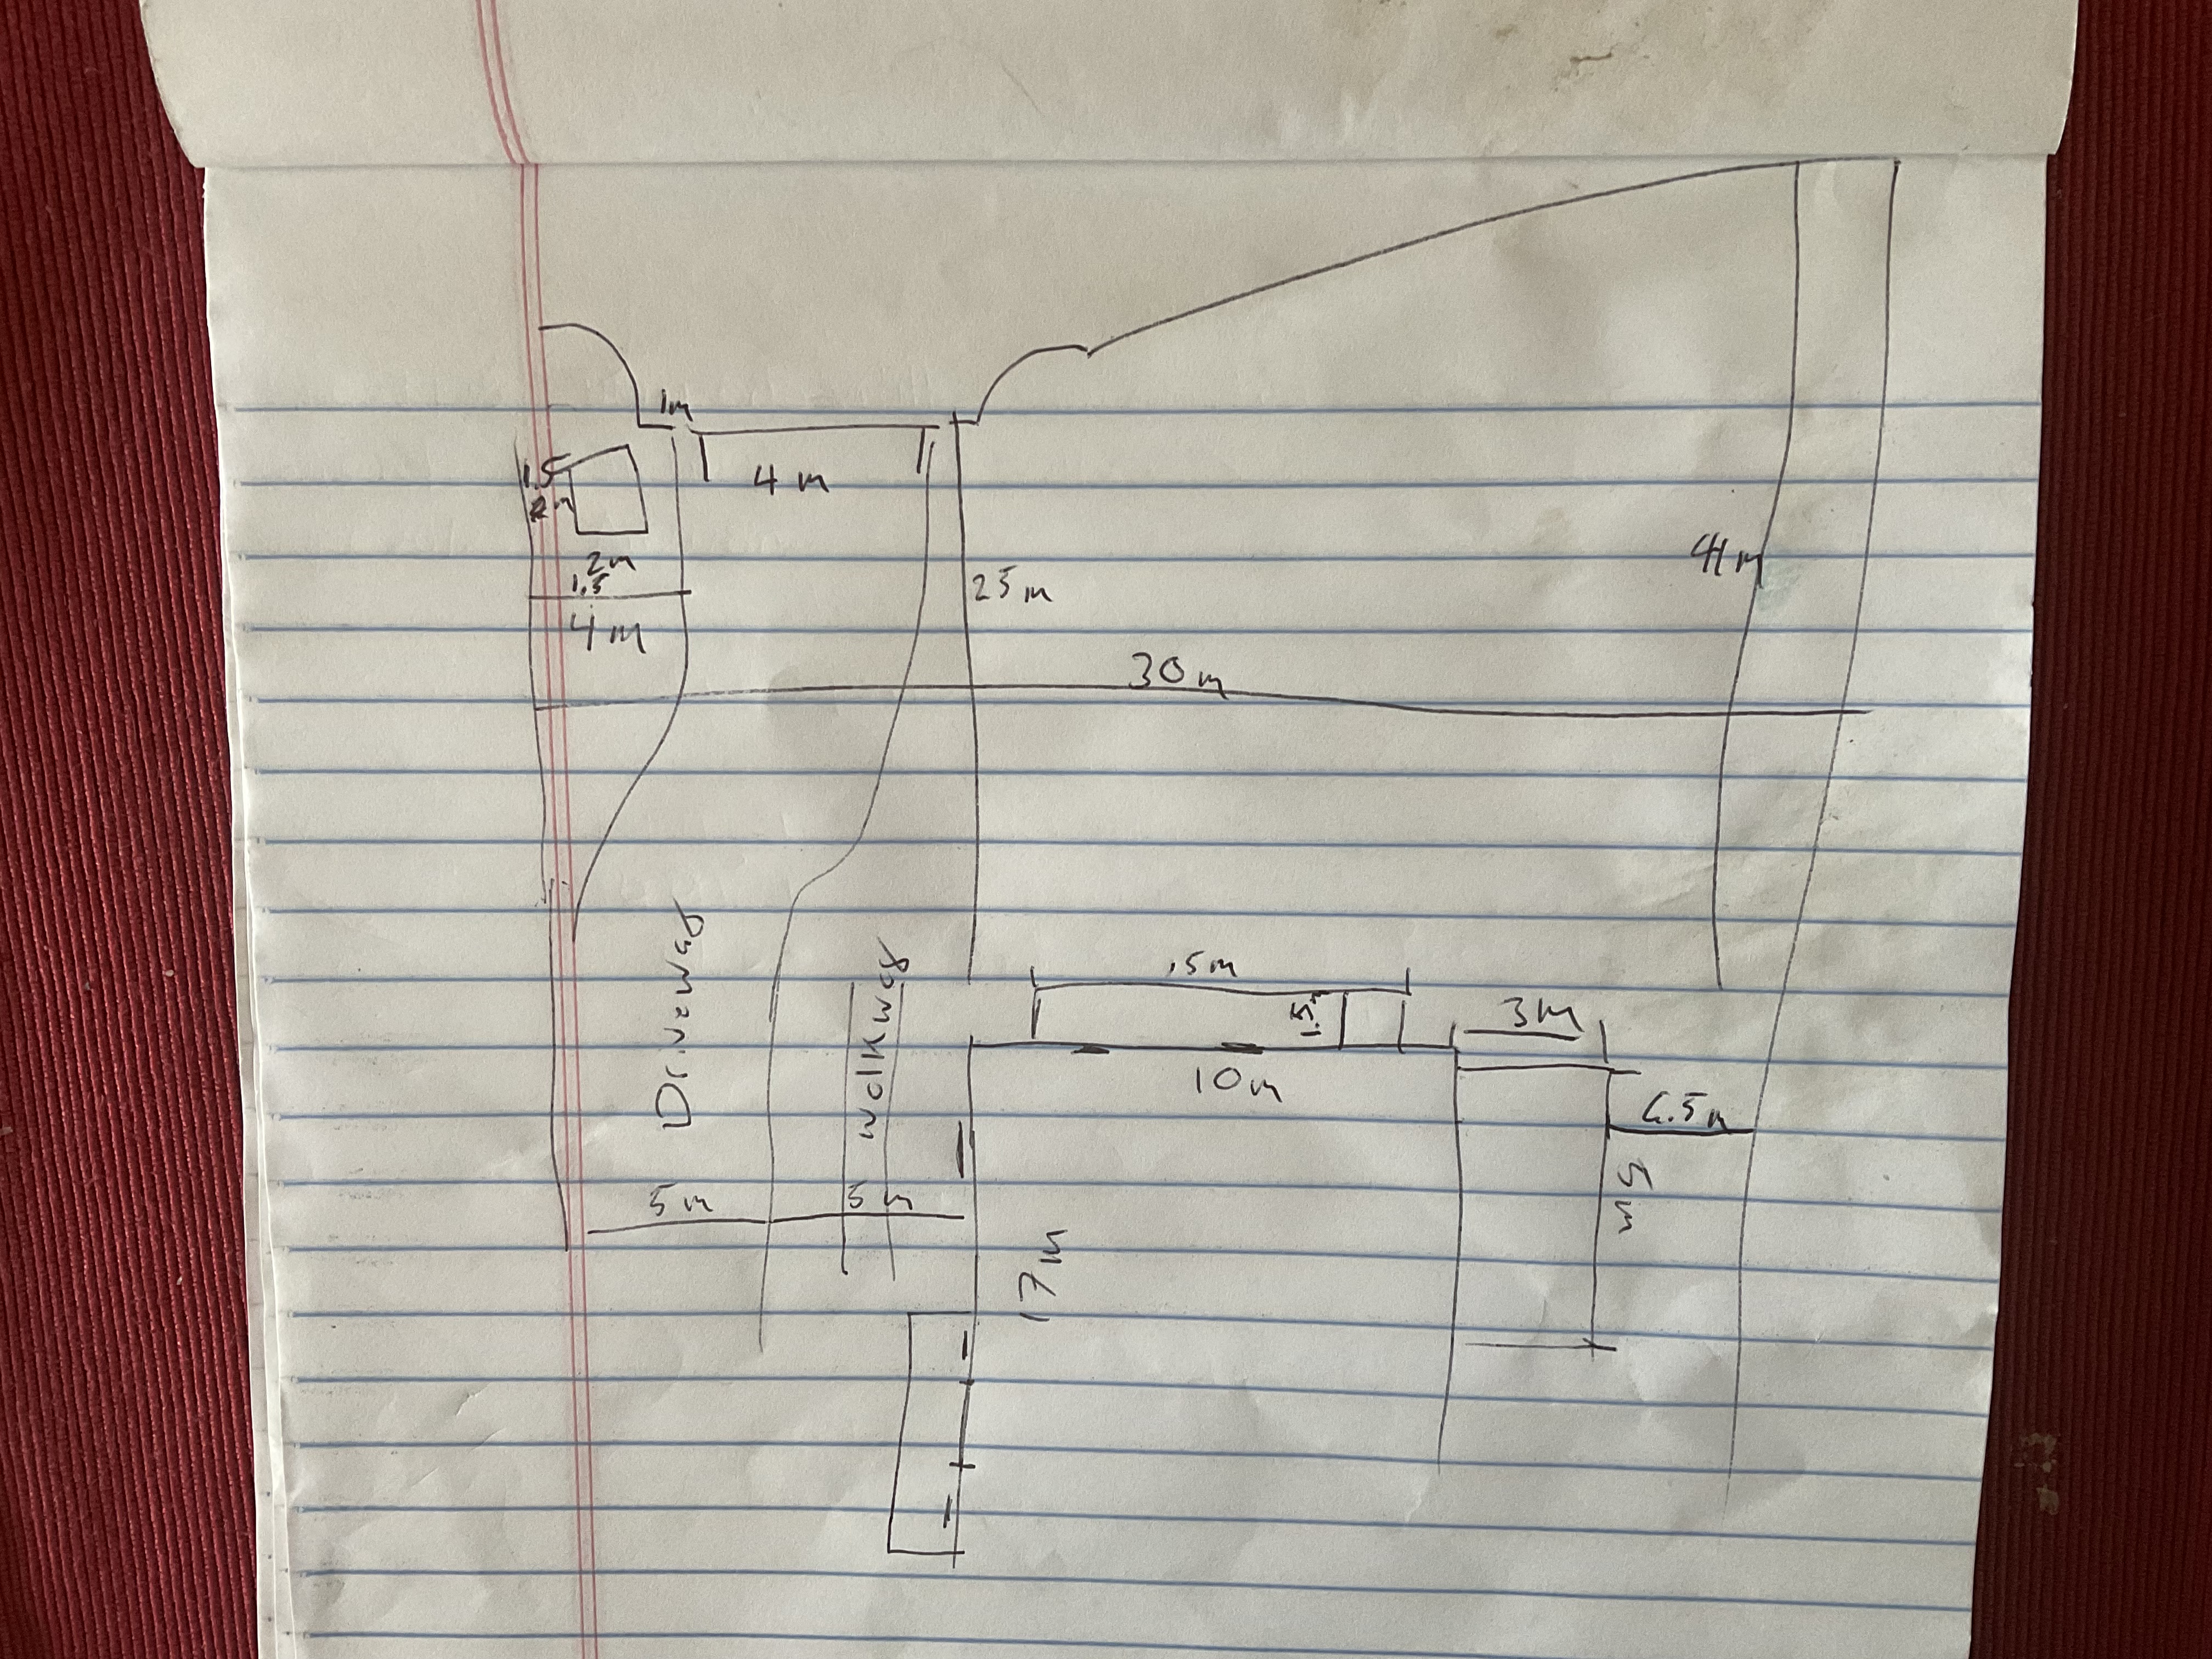 1m
4 m
1.5
2m
1.5
4 m
25 m
41 m
30 m
Driveway
walkway
.5m
1.5
3M
10m
6.5m
5m
5 m
5 m
17m